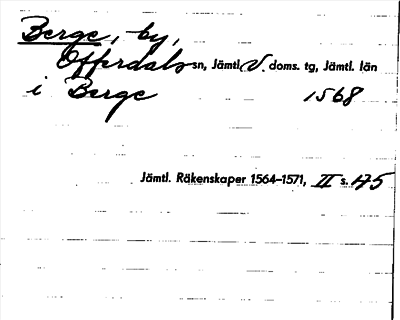 Berge, by,
Offerdals sn, Jämtl. V. doms. tg, Jämtl. län
i Berge 1568
Jämtl. Räkenskaper 1564–1571, II s. 175